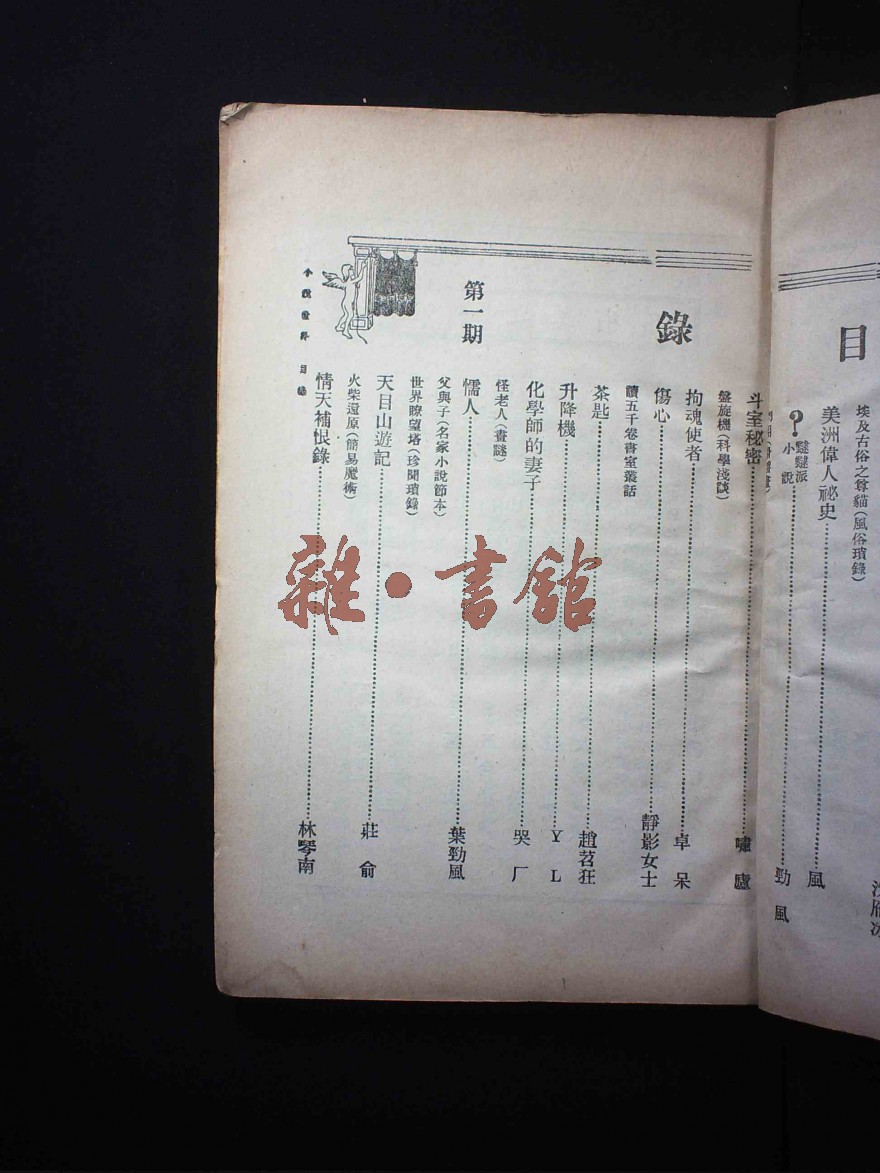 目
埃及古俗之尊貓(風俗瑣錄)
美洲偉人祕史……風
?謎謎派小說……勁風
錄
斗室秘密……嘯廬
盤旋機(科學淺談)
拘魂使者……卓呆
傷心……靜影女士
讀五千卷書室叢話
茶匙……趙苕狂
升降機……YL
化學師的妻子……哭厂
怪老人(畫謎)
第一期
懦人……葉勁風
父與子(名家小說節本)
世界瞭望塔(珍聞瑣錄)
天目山遊記……莊俞
火柴還原(簡易魔術)
情天補恨錄……林琴南
小說世界 目錄
雜·書館